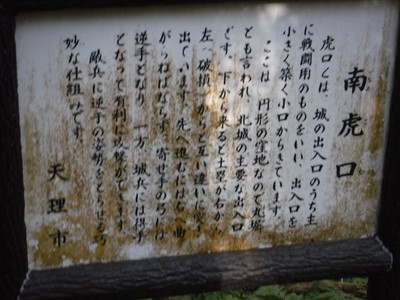 南虎口
虎口とは、城の出入口のうち主
に戦闘用のものをいい、出入口を
小さく築く小口からきています。
ここは、円形の窪地なので丸堀
とも言われ、北城の主要な出入口
です。下から来ると土塁が右から
左(破損)からと互い違いに突き
出ています。先へ進むには左へ曲
がらねばならず、寄せ手の弓には
逆手となり、一方、城兵には順手
となって有利に攻撃ができます。
敵兵に逆手の姿勢をとらせる巧
妙な仕組みです。
天理市